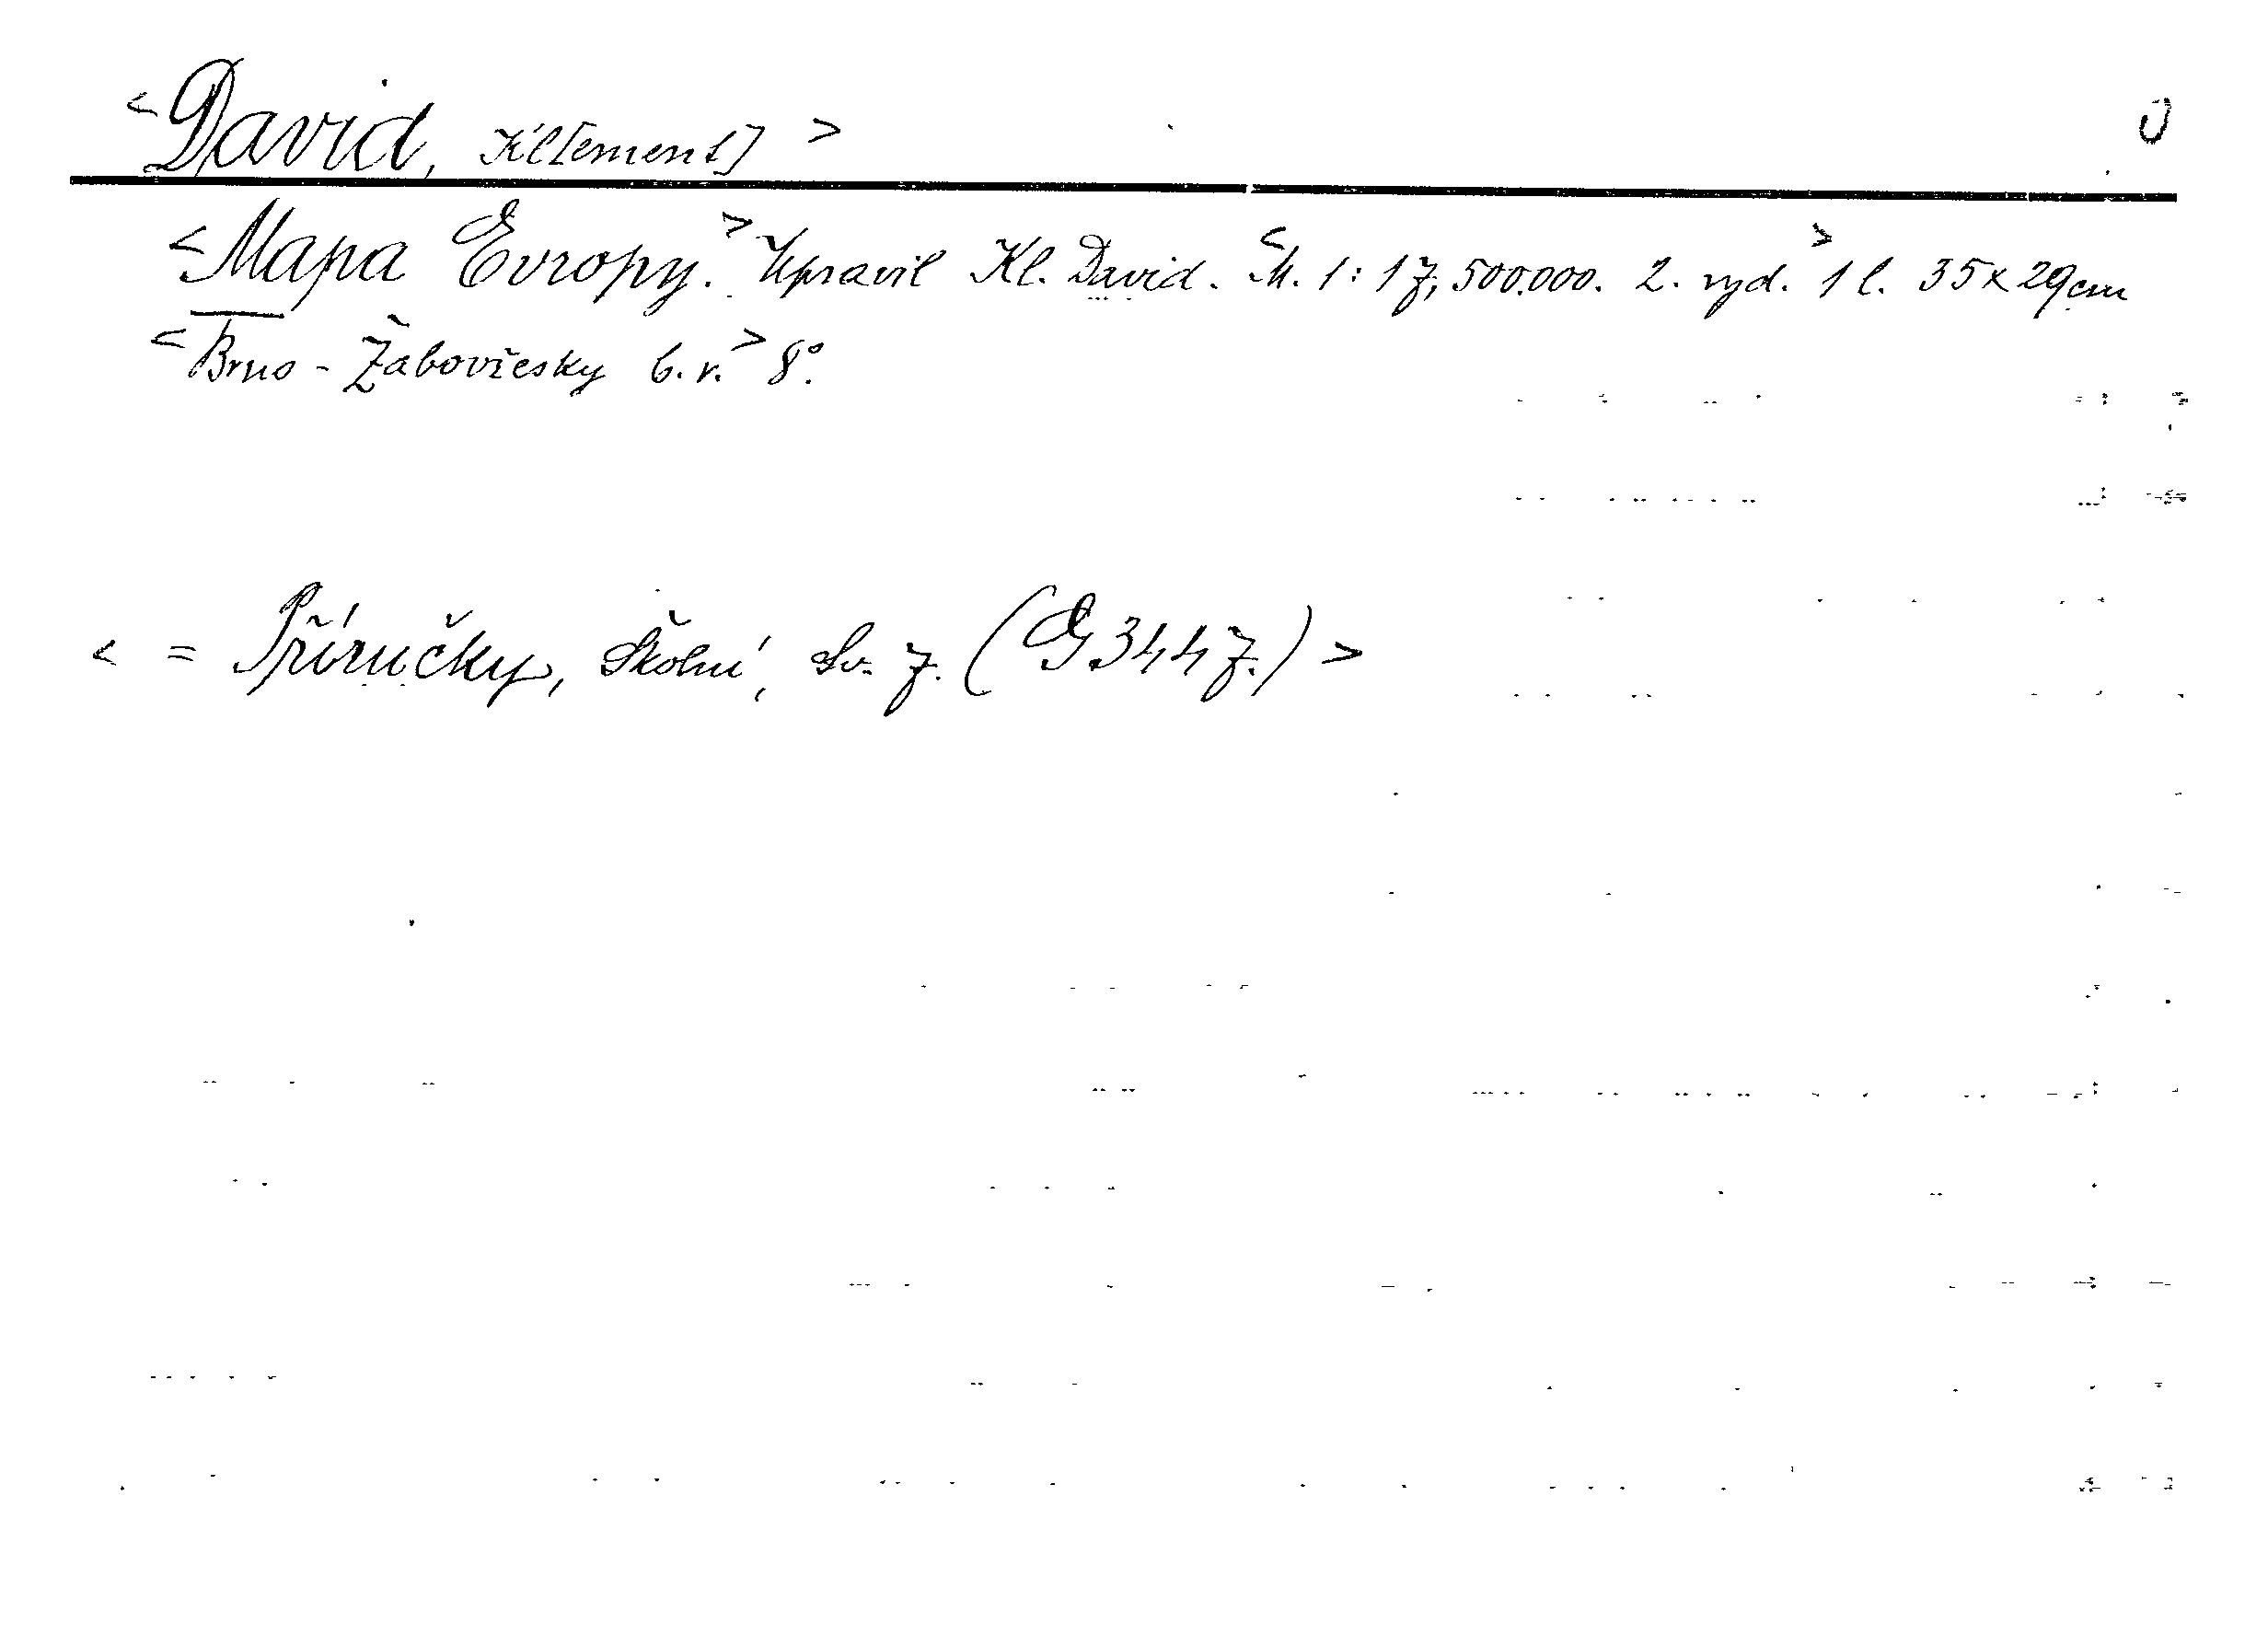 <David, Kl[ement]>
<Mapa Evropy.> Upravil Kl. David. <M. 1:17,500.000. 2. vyd.> 1 l. 35x29cm
<Brno - Žabovřesky b.r.> 8°.
< = Příručky, Školní, Sv. 7. (G 3447.)>